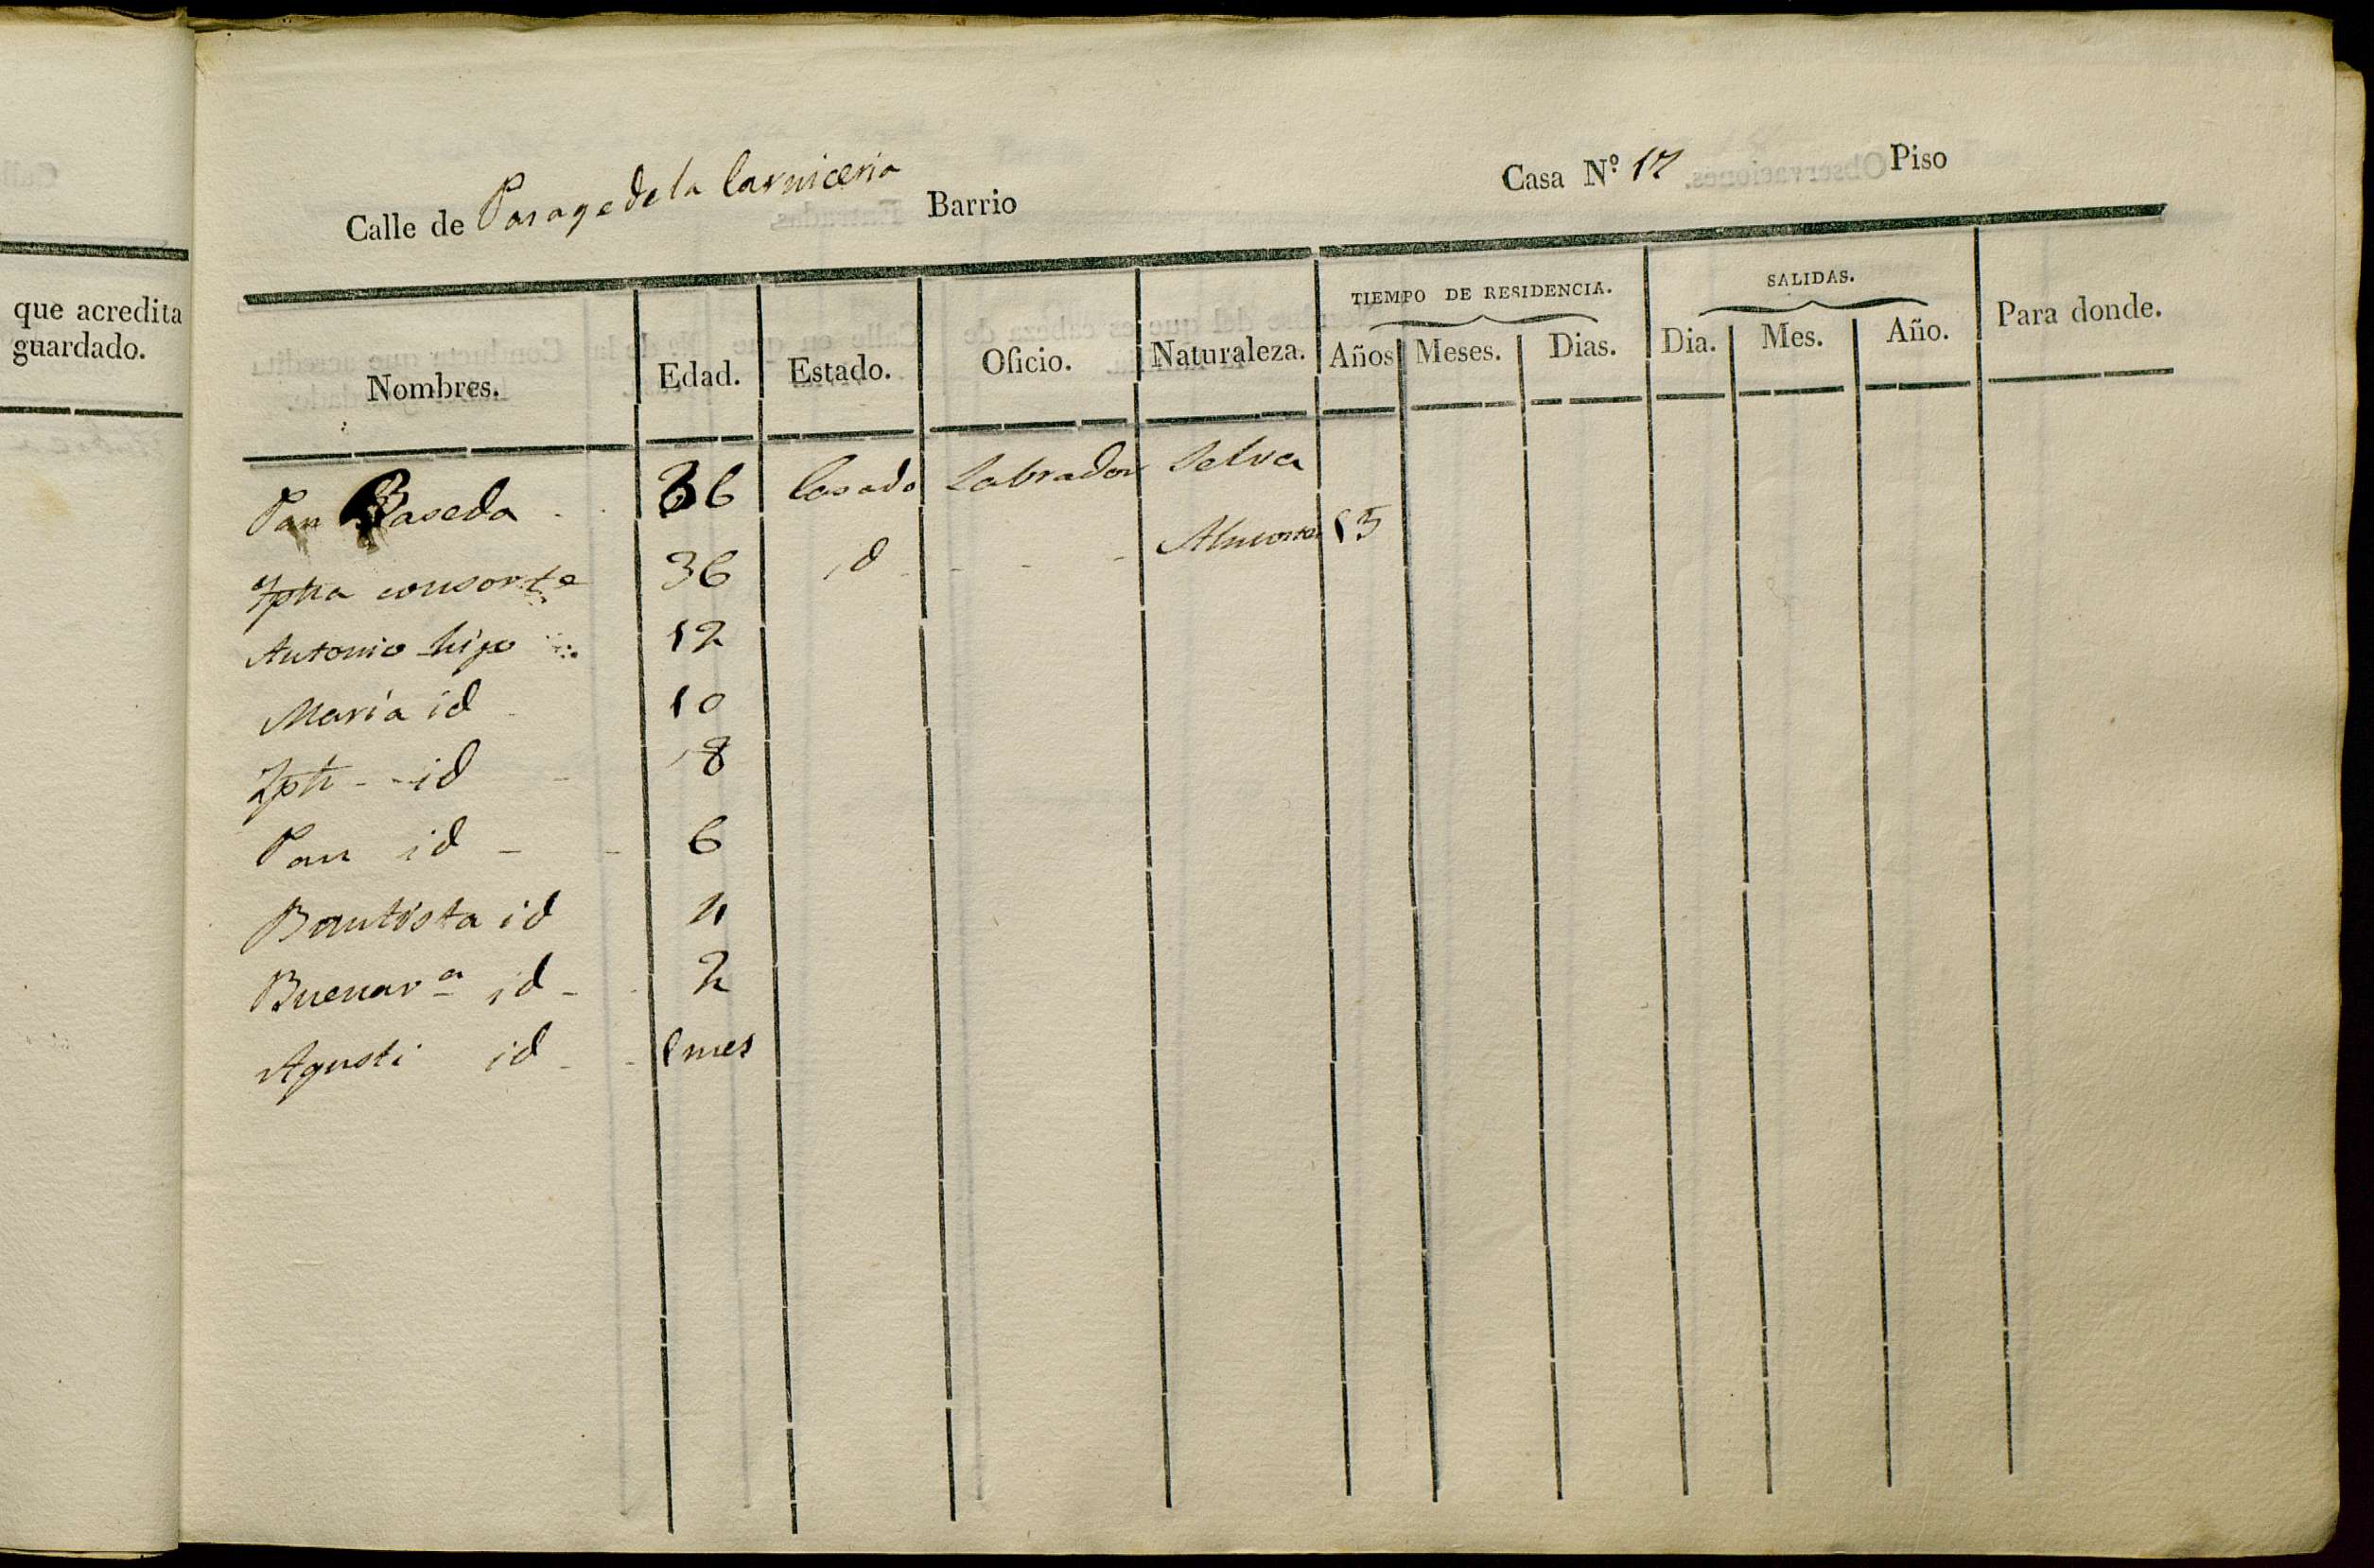 que acredita
guardado.
Calle de Parage de la Carniceria Barrio Casa N.º 17 Piso
Nombres. Edad. Estado. Oficio. Naturaleza. TIEMPO DE RESIDENCIA. Años Meses. Dias. SALIDAS. Dia. Mes. Año. Para donde.
Pau Baseda 36 Casado Labrador Selva
Jpha consorte 36 id Almoster 15
Antonio hijo 12
María id 10
Jph id 8
Pau id 6
Bautista id 4
Buenav.ª id 2
Agusti id 1 mes